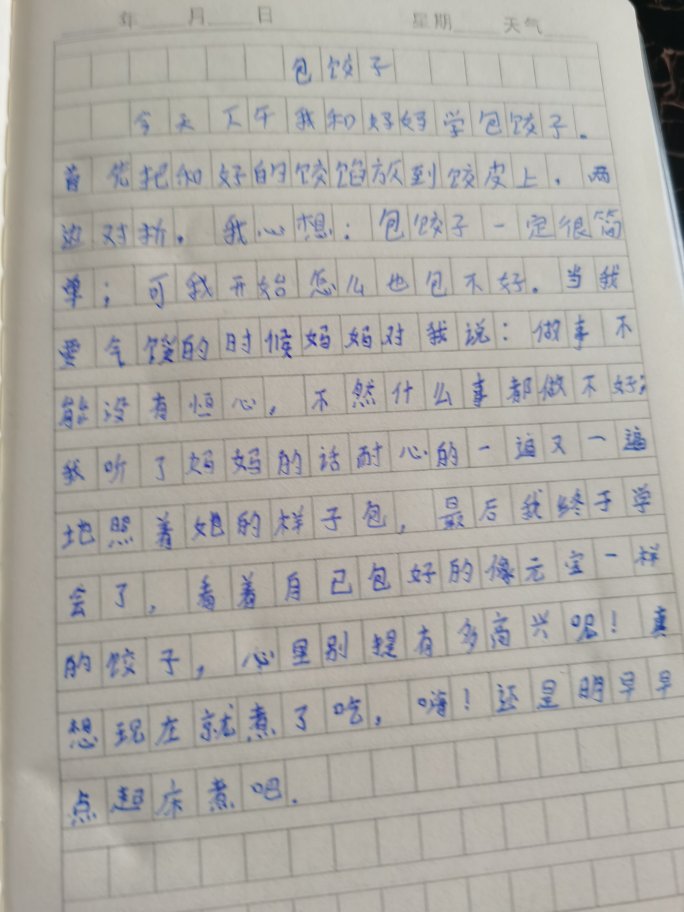 年 月 日 星期 天气
包饺子
今天下午我和妈妈学包饺子.
首先把和好的饺馅放到饺皮上.两
边对折.我心想:包饺子一定很简
单;可我开始怎么也包不好.当我
要气馁的时候妈妈对我说:做事不
能没有恒心,不然什么事都做不好;
我听了妈妈的话耐心的一遍又一遍
地照着她的样子包,最后我终于学
会了,看着自己包好的像元宝一样
的饺子,心里别提有多高兴呢!真
想现在就煮了吃,嗨!还是明早早
点起床煮吧.